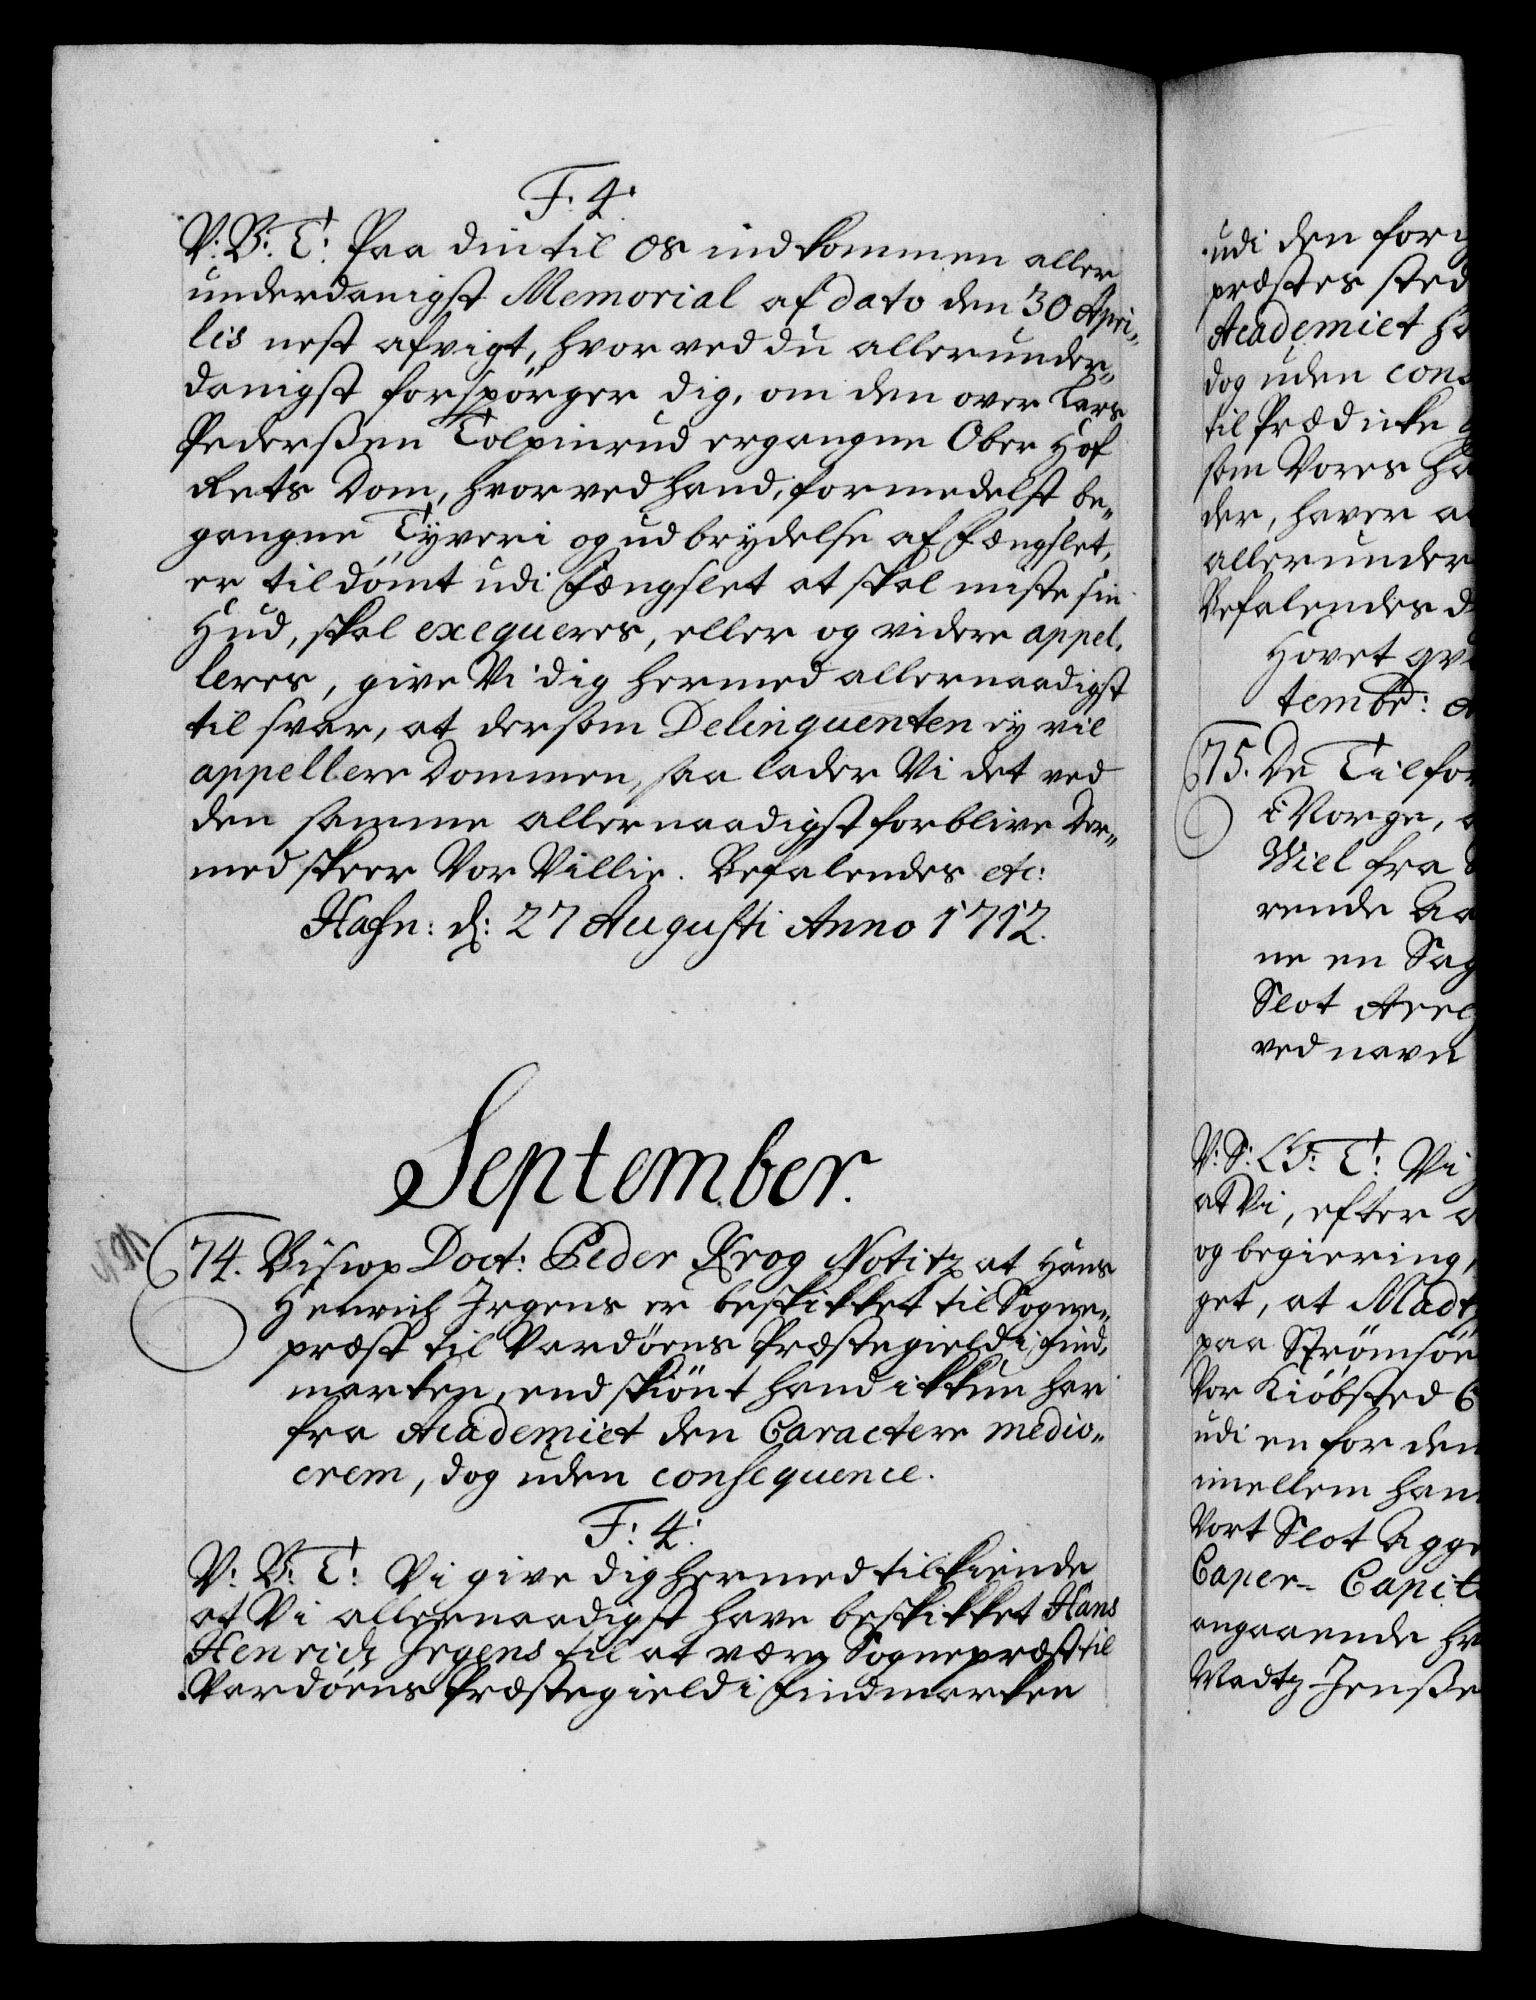 F: 4:
V: B: T: Paa din til Os indkommen aller
underdanigst Memorial af dato den 30 Apri-
lis nest afvigt, hvorved du allerunder-
danigst forspørger dig, om den over Lars
Pederssen Tolpinrud ergangne Ober Hof
Rets Dom, hvorved hand, formedelst be-
gangne Tyveri og udbrydelse af Fængslet,
er tildømt udi Fængslet at skal miste sin
Hud, skal exequeres, eller og videre appel-
leres, give Vi dig hermed allernaadigst
til svar, at dersom Delinquenten ey vil
appellere Dommen, saa lader Vi det ved
den samme allernaadigst forblive Der-
med skeer Vor Villie. Befalendes etc:
Hafn: d: 27 Augusti Anno 1712.
September.
74. Bisiop Doct: Peder Krog Notitz at Hans
Henrich Jrgens er beskikket til Sogne-
præst til Vardøens Præstegield i Find-
marken, end skiønt hand ikkun har
fra Academiet den Caractere medio-
crem, dog uden consequence.
F: 4:
V: B: T: Vi give dig hermed tilkiende
at Vi allernaadigst have beskikket Hans
Henrich Jrgens til at være Sognepræst til
Vardøens Præstegield i Findmarken
udi den for
præstes sted
Academiet
dog uden cons
til Prædicke
som Vores
der, haver
allerunder
Befalendes
Hovet
tembr:
75. De Tilfor
i Norge,
Wiel fra
rende
ne en Sag
Slot
ved navn
V: S: G: T: Vi
at Vi, efter
og begiering,
get, at Madtz
paa Strømsøe
Vor Kiøbsted
udi en for den
imellem
Vort Slot Agge
Caper- Capit
angaaende
Madtz Jensse